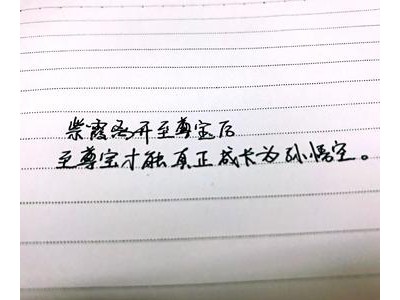 紫霞离开至尊宝后
至尊宝才能真正成长为孙悟空。